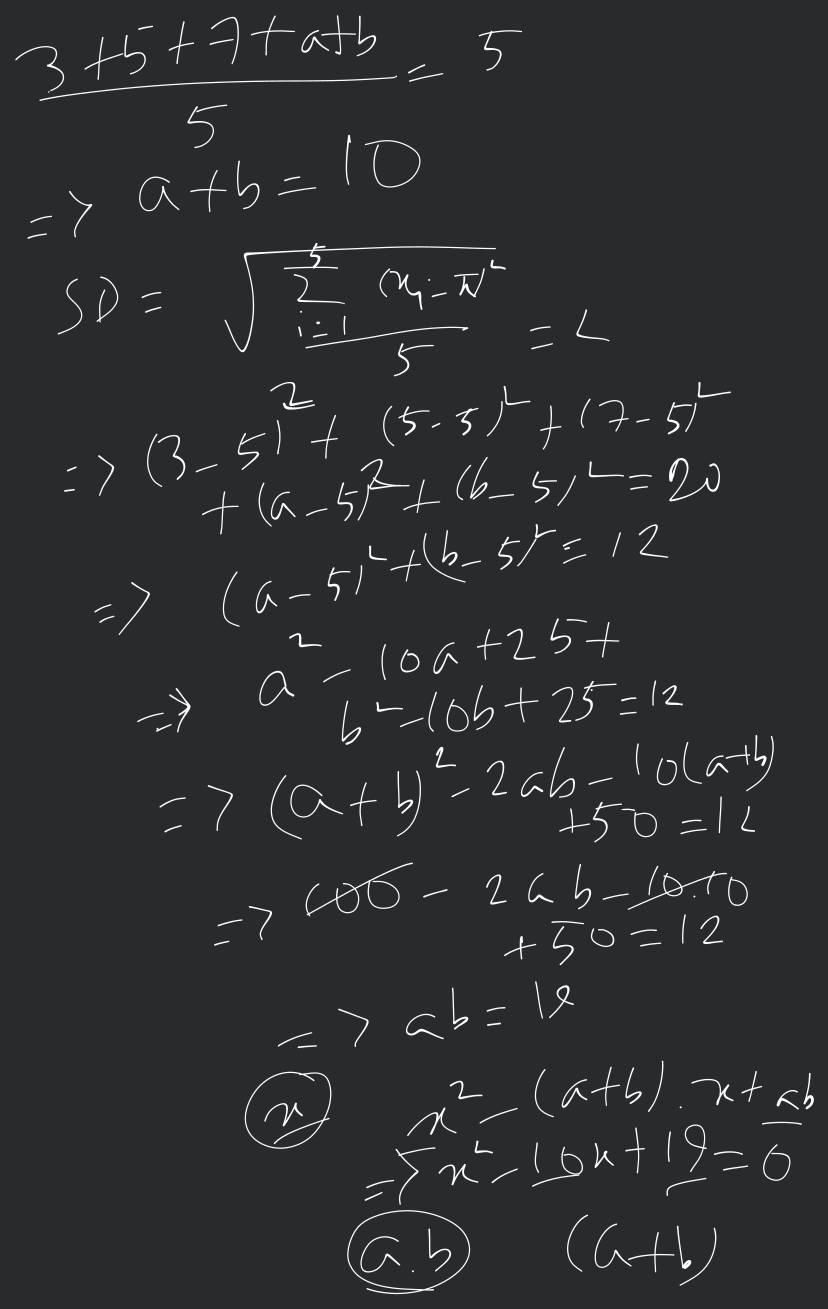 3+5+7+a+b / 5 = 5
=> a+b = 10
SD = √( Σ_{i=1}^{5} (x_i - x̄)² / 5 ) = 2
=> (3-5)² + (5-5)² + (7-5)²
+ (a-5)² + (b-5)² = 20
=> (a-5)² + (b-5)² = 12
=> a² - 10a + 25 +
b² - 10b + 25 = 12
=> (a+b)² - 2ab - 10(a+b)
+50 = 12
=> 100 - 2ab - 10.10
+50 = 12
=> ab = 19
x x² - (a+b).x + ab
=> x² - 10x + 19 = 0
a.b (a+b)